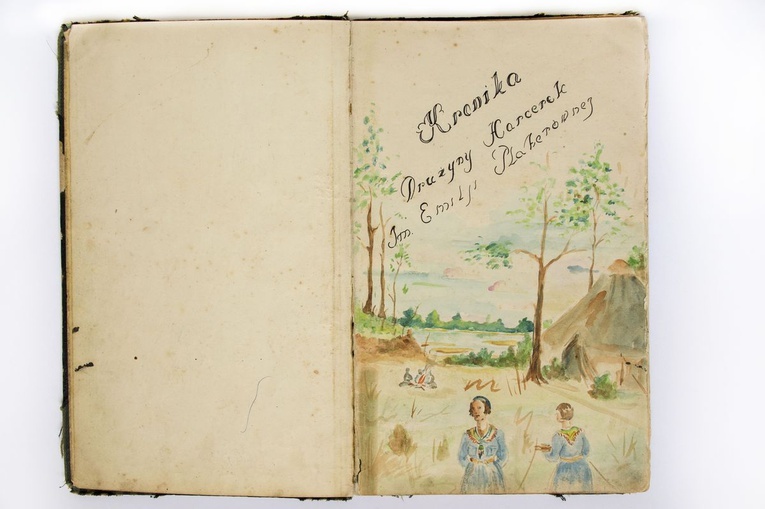 Kronika
Drużyny Harcerek
Im. Emilji Platerównej